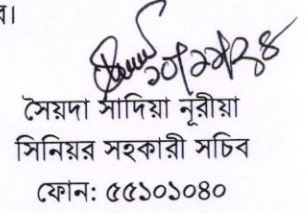 ব।
১০/১১/২৪
সৈয়দা সাদিয়া নূরীয়া
সিনিয়র সহকারী সচিব
ফোন: ৫৫১০১০৪০